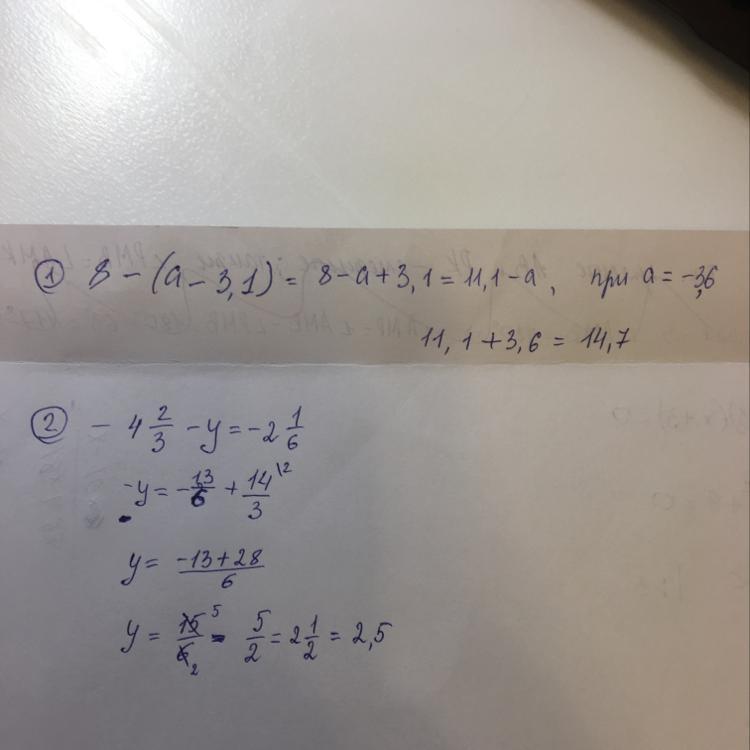 ① 8 - (a - 3,1) = 8 - a + 3,1 = 11,1 - a, при a = -3,6
11,1 + 3,6 = 14,7
② - 4 2/3 - y = -2 1/6
-y = -13/6 + 14/3 \2
y = -13+28/6
y = 15/6 5 2 = 5/2 = 2 1/2 = 2,5